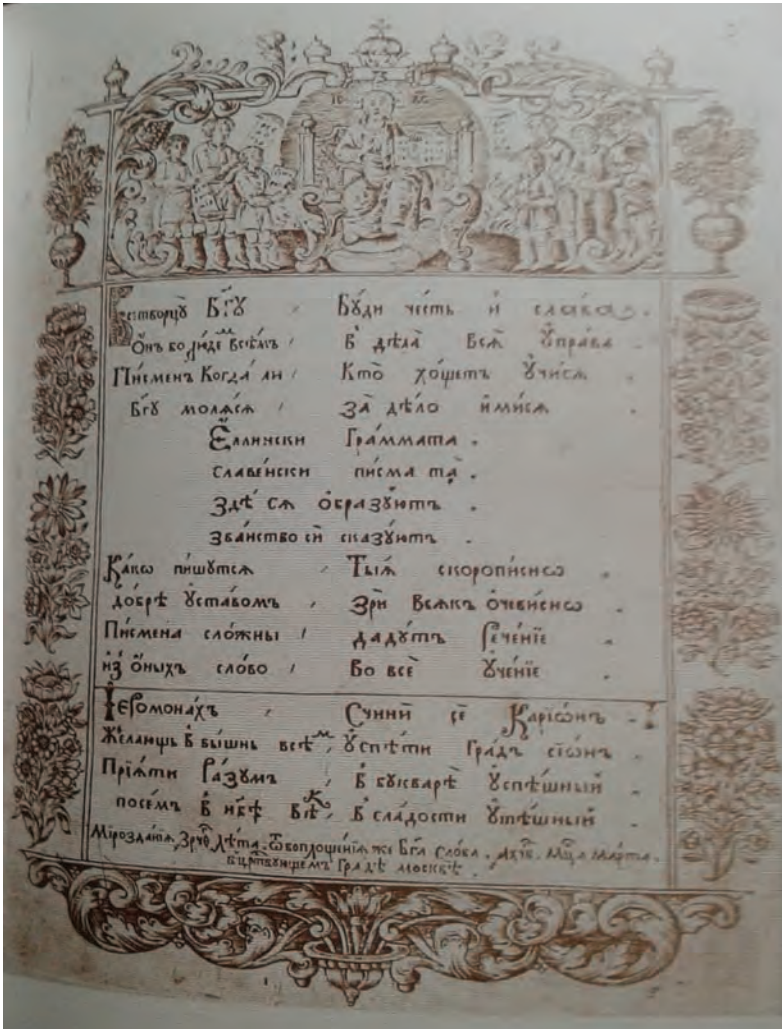 Всетворцꙋ̀ Бг҃ꙋ , Бꙋди че́сть и҆ сла́ва .
Ѻ҆нъ бо лю́демъ всѣ́мъ , в̾ дѣ́ла всѧ̑ ᲂу҆пра́ва .
Пи́сменъ когда̀ ли , Кто̀ хо́щетъ ᲂу҆чи́сѧ .
Бг҃ꙋ молѧ́сѧ , За̀ дѣ́ло и҆ми́сѧ .
Е҆́ллински Гра́ммата .
славе́нски писма та̑ .
Здѣ́ сѧ ѻ҆бразꙋ́ютъ .
зва́нство сѝ сказꙋ́ютъ .
Ка́кѡ пи́шꙋтсѧ , Ты́ѧ скоропи́снѡ .
до́брѣ ᲂу҆ста́вомъ , Зрѝ всѧ́къ ѻ҆чеви́снѡ .
Писмена̀ сло́жны , даду́тъ Рече́нїе .
и҆з̾ ѻ҆́ныхъ сло́во , Во всѐ ᲂу҆че́нїе .
І҆еромона́хъ , Счинѝ сѐ Карїѡ́нъ .
Жела́ющь в̾ вы́шнь всѣ̑мъ , ᲂу҆спѣ́ти Гра́дъ сїѡ́нъ .
Прїѧ́ти Ра́зꙋмъ , в̾ бꙋкварѣ̀ ᲂу҆спѣ́шный .
посе́мъ в̾ нб҃ѣ вѣ́к , в̾ сла́дости ᲂу҆тѣ́шный .
Мїрозда́нїѧ, ЗРЧВ, лѣ́та. Ѿ воплоще́нїѧ же Бг҃а сло́ва. АХЧВ. Мц҃а ма́рта.
в̾ црⷭ҇твꙋющемъ Гра́дѣ москвѣ̀ .